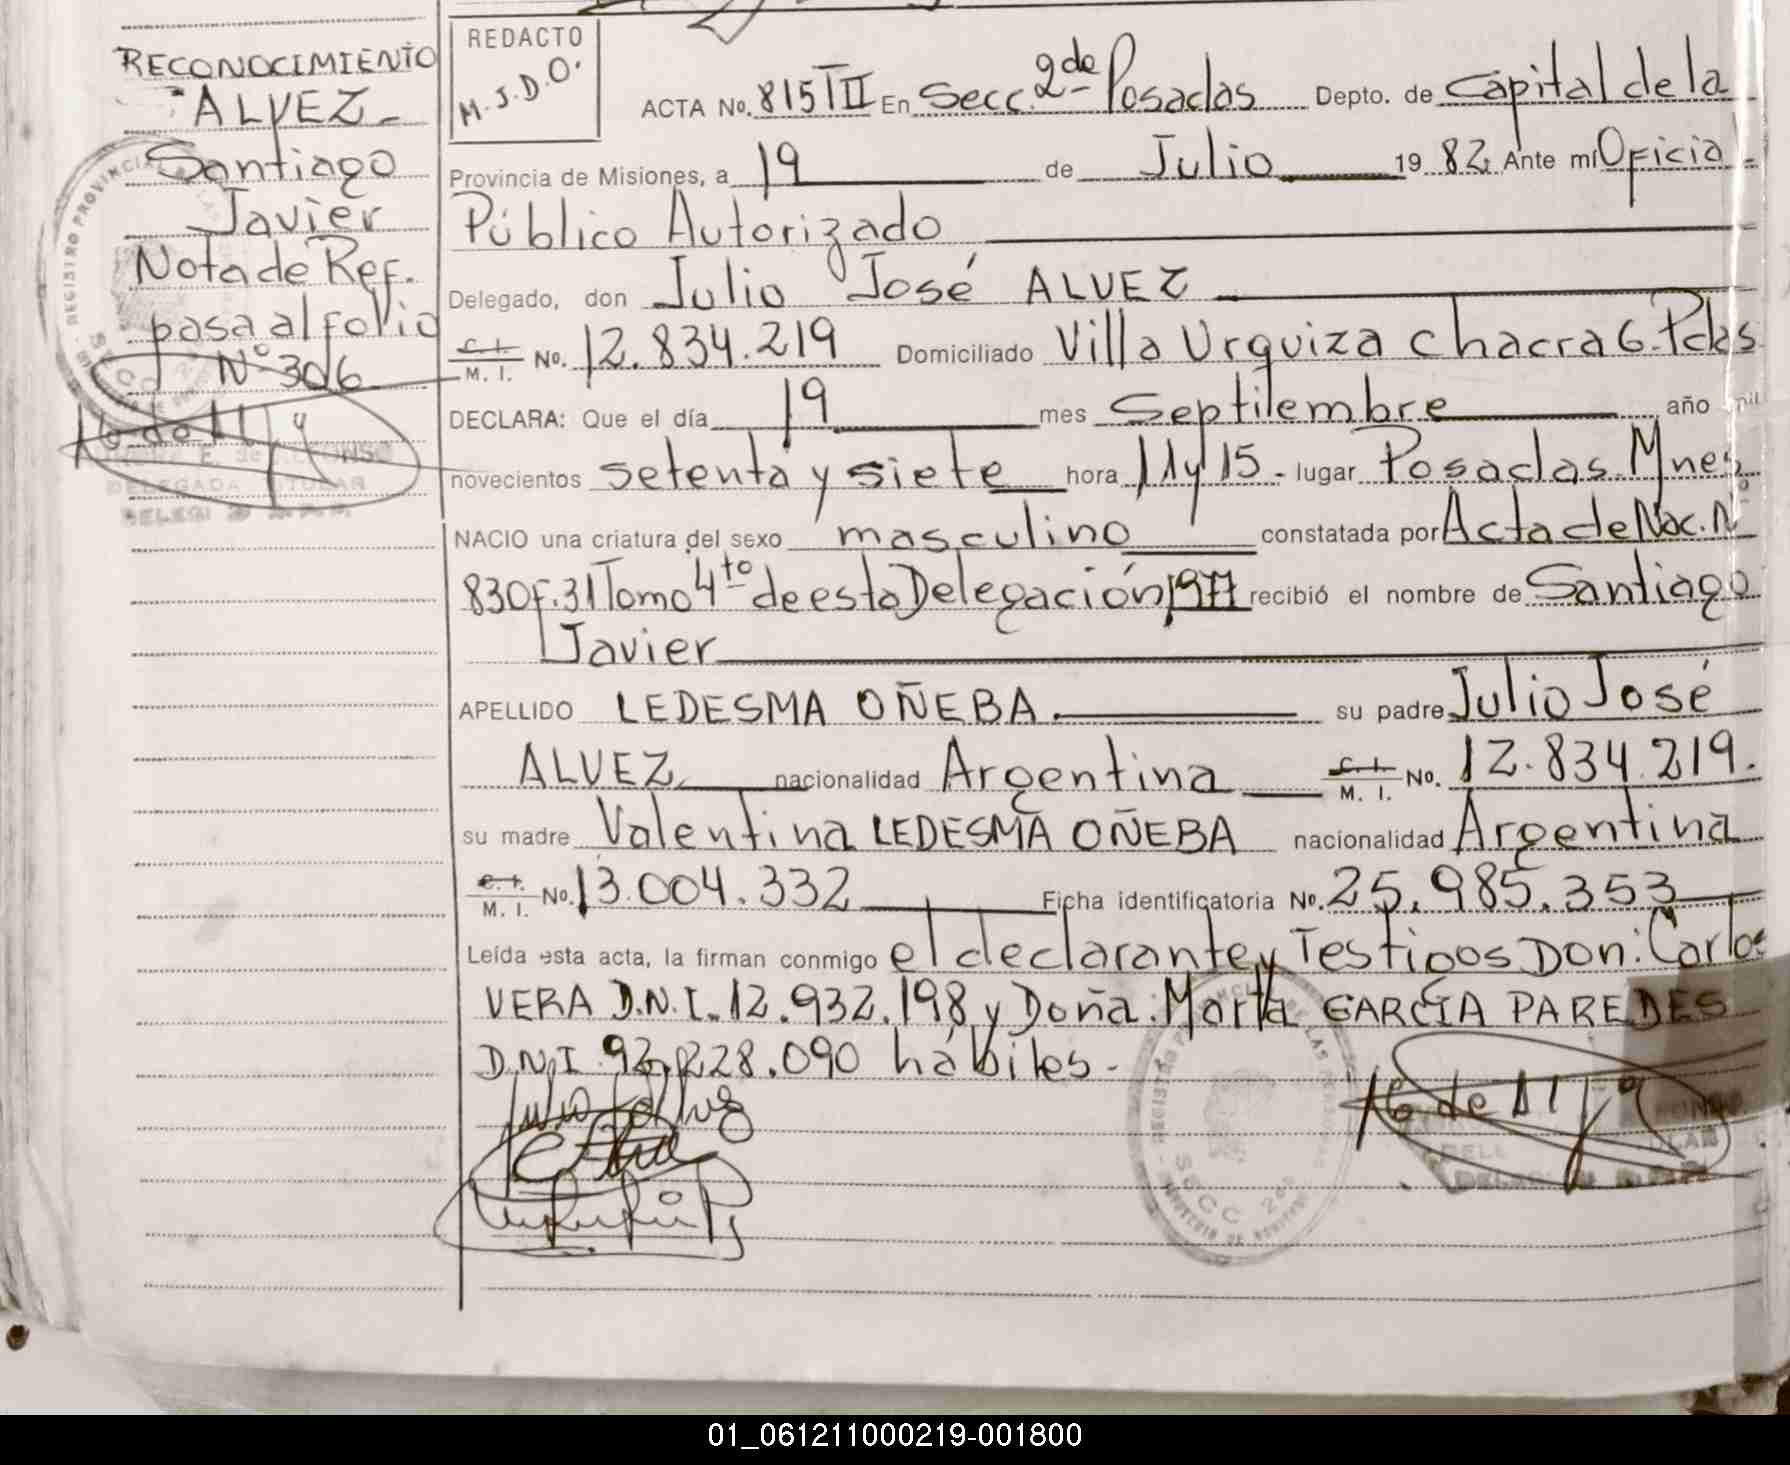 RECONOCIMIENTO
ALVEZ
Santiago
Javier
Nota de Ref.
pasa al folio
Nº 306
REDACTO
M.J.D.O.
ACTA No. 815 TII En Secc. 2da Posadas Depto. de Capital de la
Provincia de Misiones, a 19 de Julio 1982 Ante mí Oficial
Público Autorizado
Delegado, don Julio José ALVEZ
C. I. M. I. No. 12.834.219 Domiciliado Villa Urquiza chacra 6. Pdas
DECLARA: Que el día 19 mes Septilembre año mil
novecientos setenta y siete hora 11 y 15 - lugar Posadas. Mnes
NACIO una criatura del sexo masculino constatada por Acta de Nac. Nº
830 F. 31 Tomo 4to de esta Delegación 1977 recibió el nombre de Santiago
Javier
APELLIDO LEDESMA OÑEBA su padre Julio José
ALVEZ nacionalidad Argentina C. I. M. I. No. 12.834.219.
su madre Valentina LEDESMA OÑEBA nacionalidad Argentina
C. I. M. I. No. 13.004.332 Ficha identificatoria No. 25.985.353
Leída esta acta, la firman conmigo el declarante y Testigos Don: Carlos
VERA D.N.I. 12.932.198 y Doña: Marta GARCIA PAREDES
D.N.I. 92.228.090 hábiles.-
01_061211000219-001800